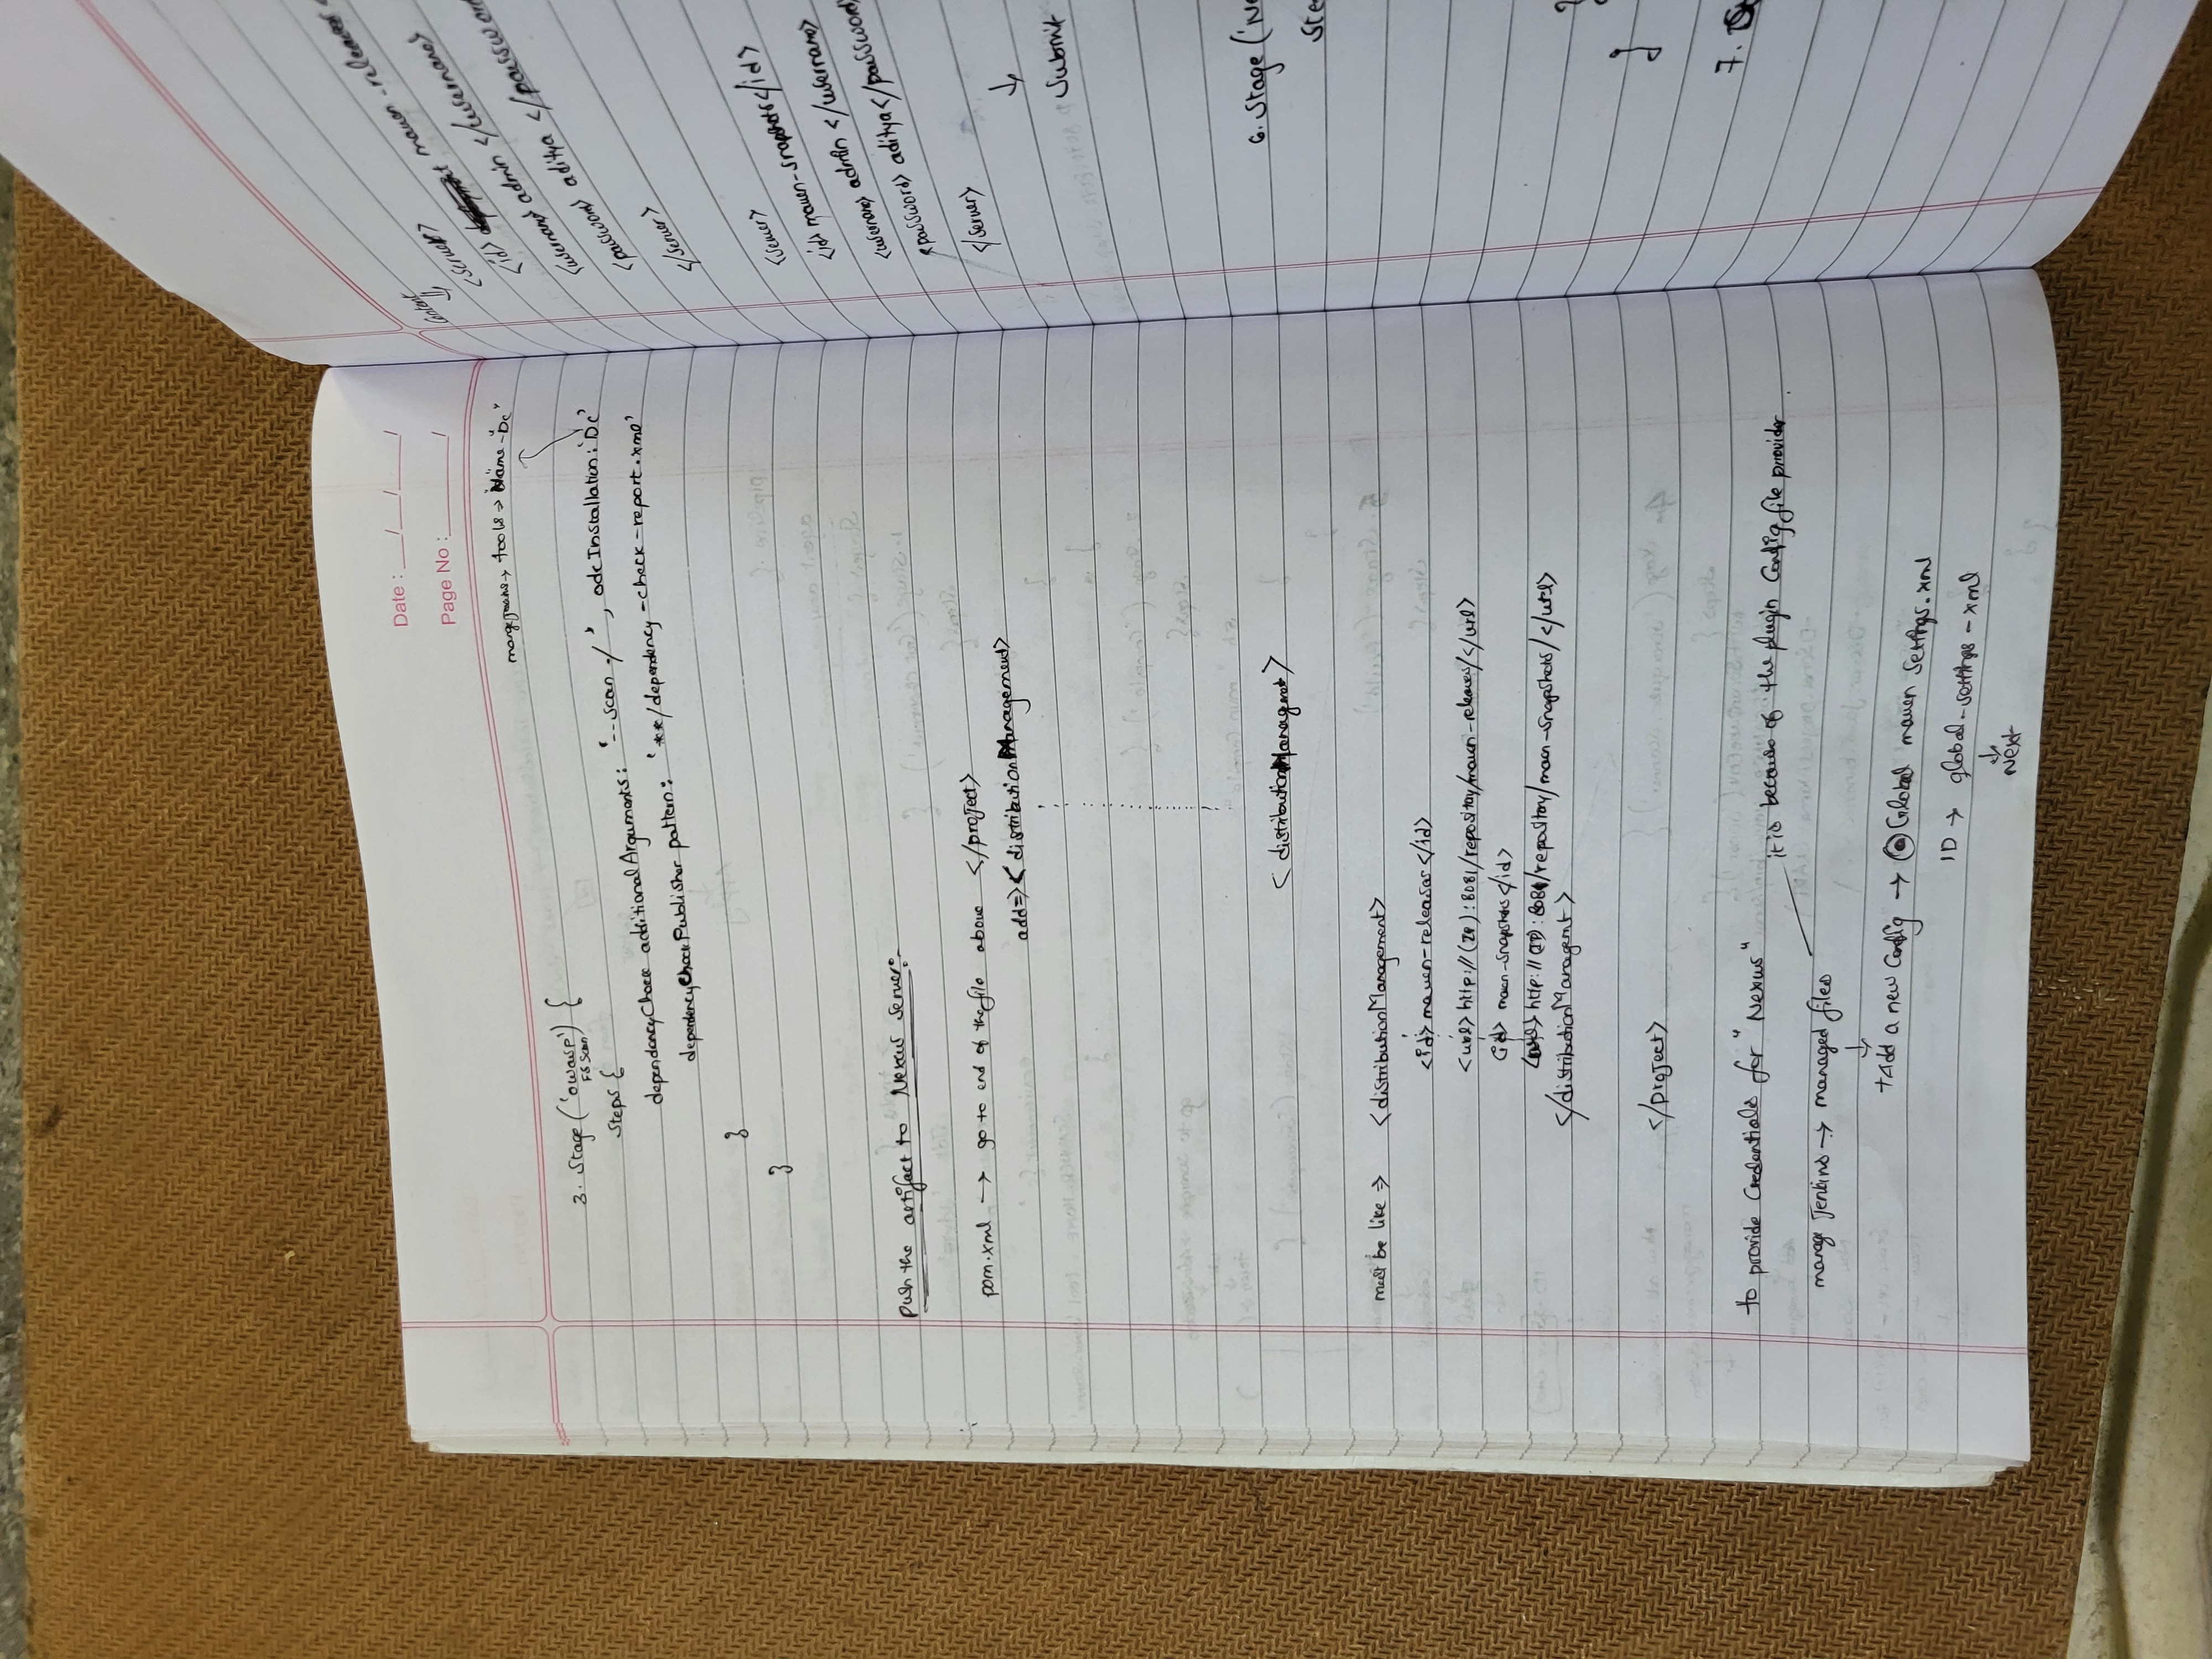 Date : __/__/____/
Page No :________/
manage Jenkins → tools → Name - "DC"
3. Stage ('owasp') {
FS Scan
Steps {
dependencyCheck additionalArguments: '--scan ./ ', odcInstallation: 'DC'
dependencyCheckPublisher pattern: '**/dependency-check-report.xml'
}
}
Push the artifact to Nexus Server:-
pom.xml → go to end of the file above </project>
add => <distributionManagement>
<distributionManagement>
must be like => <distributionManagement>
<id> maven-releases </id>
<url> http://(IP):8081/repository/maven-releases/</url>
<id> maven-snapshots </id>
<url> http://(IP):8081/repository/maven-snapshots/</url>
</distributionManagemt>
</project>
to provide Credentials for "Nexus"
it is because of the plugin Config file provider.
manage Jenkins → managed files
↓
+Add a new Config → Global maven Settings.xml
ID → global-settings-xml
↓
Next
Content
⇓
<server>
<id> maven-releases <
<username> admin </username>
<password> aditya </password
</server>
<server>
<id> maven-snapshots </id>
<username> admin </username>
<password> aditya </password>
</server>
↓
Submit
6. Stage ('Ne
Ste
}
7.